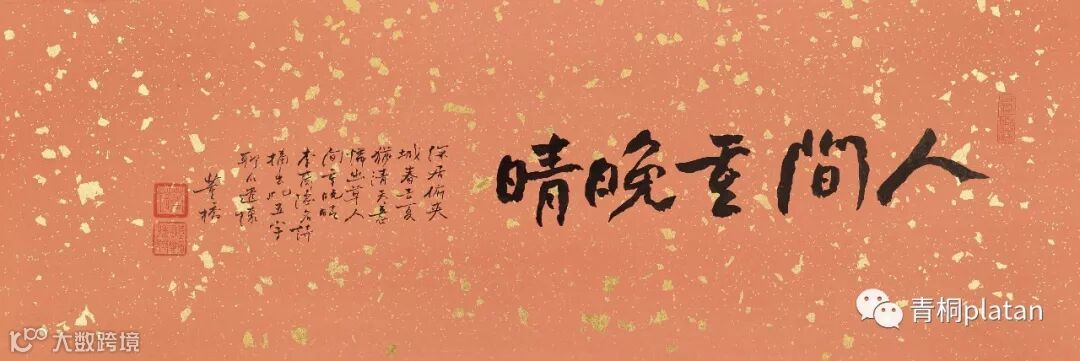 人間重晚晴
深居俯夾
城春去夏
猶清天意
憐幽草人
間重晚晴
李商隱名詩
摘出此五字
聊以遣懷
董橋
青桐platan
大数跨境